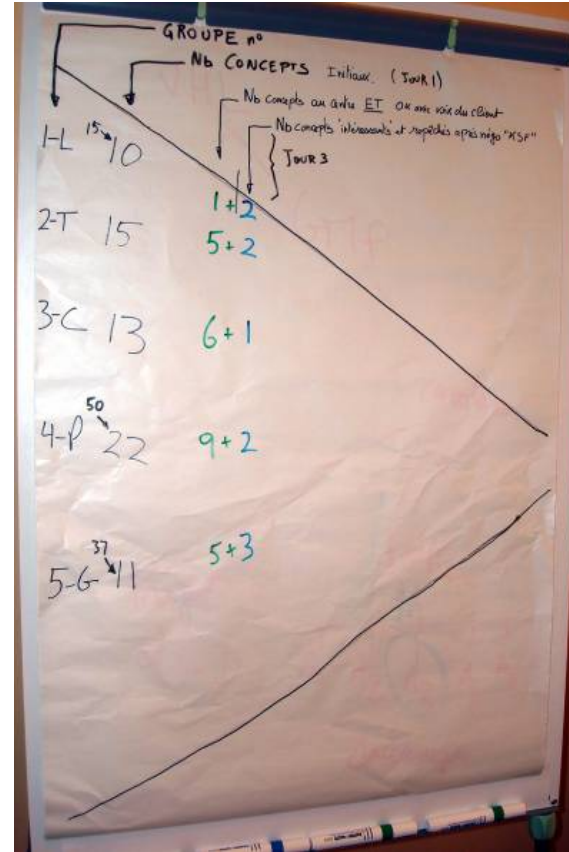 GROUPE nº
Nb CONCEPTS Initiaux. (JOUR 1)
Nb concepts au centre ET OK avec voix du client
Nb concepts "intéressants" et repêchés après négo "KSF"
JOUR 3
1-L 15 10
1+2
2-T 15 5+2
3-C 13 6+1
50
4-P 22 9+2
37
5-G 11 5+3